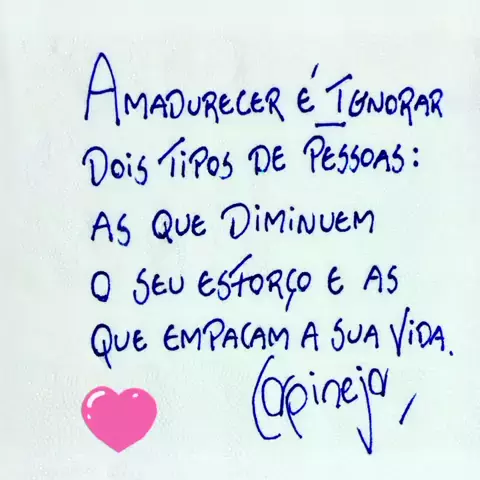 AMADURECER É IGNORAR
DOIS TIPOS DE PESSOAS:
AS QUE DIMINUEM
O SEU ESFORÇO E AS
QUE EMPACAM A SUA VIDA.
Carpinejar